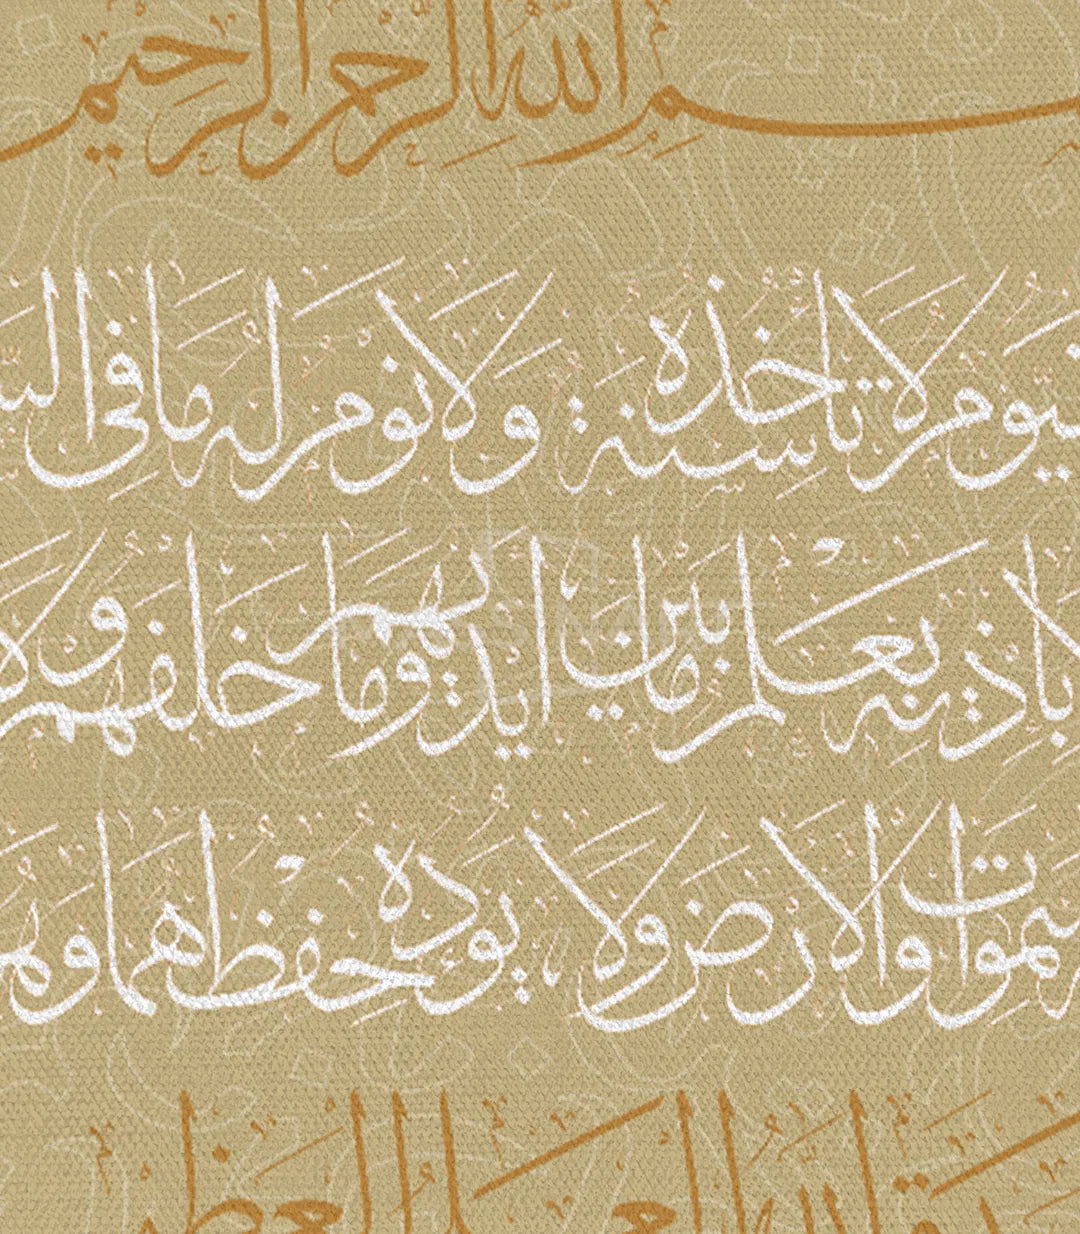 سم الله الرحمن الرحيم
يوم لا تأخذه سنة ولا نوم له ما في
بإذنه يعلم ما بين أيديهم وما خلفهم ولا
سموات والأرض ولا يؤده حفظهما وهو
الله العلي العظيم